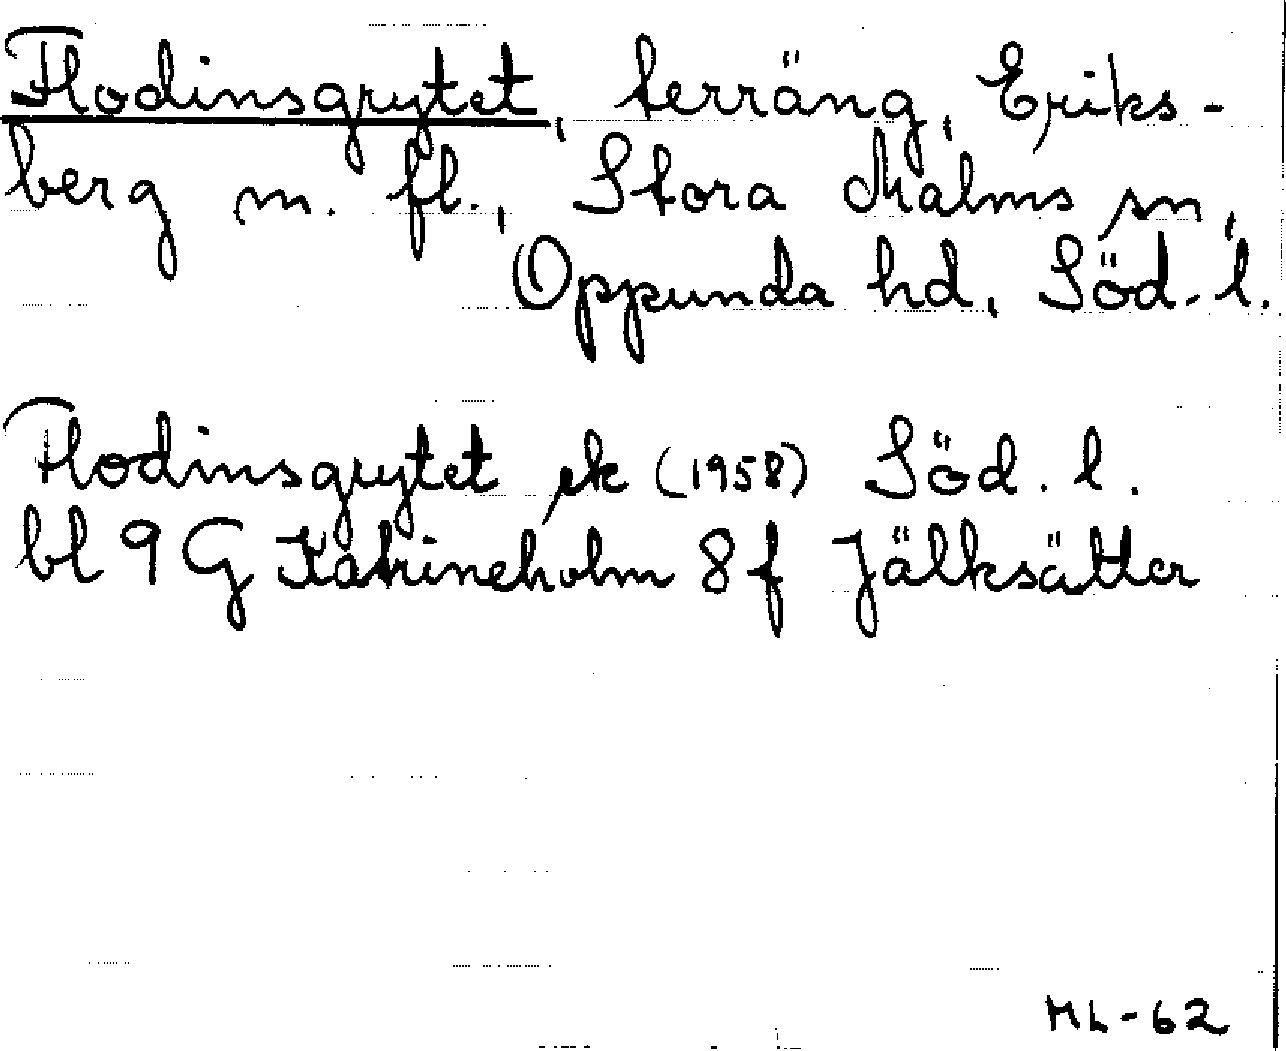 Flodinsgrytet, terräng, Eriks-
berg m. fl., Stora Malms sn,
Oppunda hd, Söd. l.
Flodinsgrytet ek (1958) Söd. l.
bl 9 G Katrineholm 8 f Jälksätter
ML-62